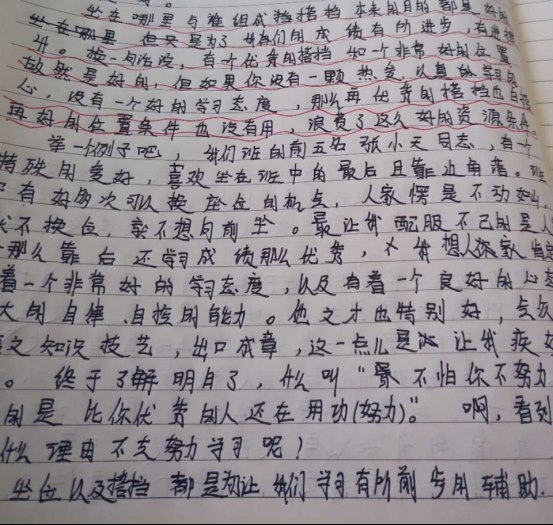 坐在哪里与谁组成搭档 本来目的都是
坐在哪里 也只是为了 我们的成绩有所进步,有
升。换一句话说,有个优秀的搭档 和一个非常好的位置
故然是好的,但如果你没有一颗热爱、认真的学习的
心,没有一个好的学习态度,那么再优秀的搭档也白搭
再好的位置条件也没有用,浪费了这么好的资源条件。
举一个例子吧,我们班的前五名 张小天同志,有一个
特殊的爱好,喜欢坐在班中的最后且靠边角落。班
有好多次可以换座位的机点,人家愣是不动如山,
不换位,就不想向前坐。最让我配服不己的是人
那么靠后还学习成绩那么优秀,我想人家 肯定
着一个非常好的学习态度,以及有着一个良好的心态
大的自律、自控的能力。他文才也特别好,
之知识技艺,出口成章,这一点儿是让我疾妒
。终于了解明白了,什么叫“最不怕你不努力
的是 比你优秀的人还在用功(努力)。” 啊,看到
什么理由不去努力学习呢!
坐位以及搭档 都是为让我们学习有所前步的辅助.